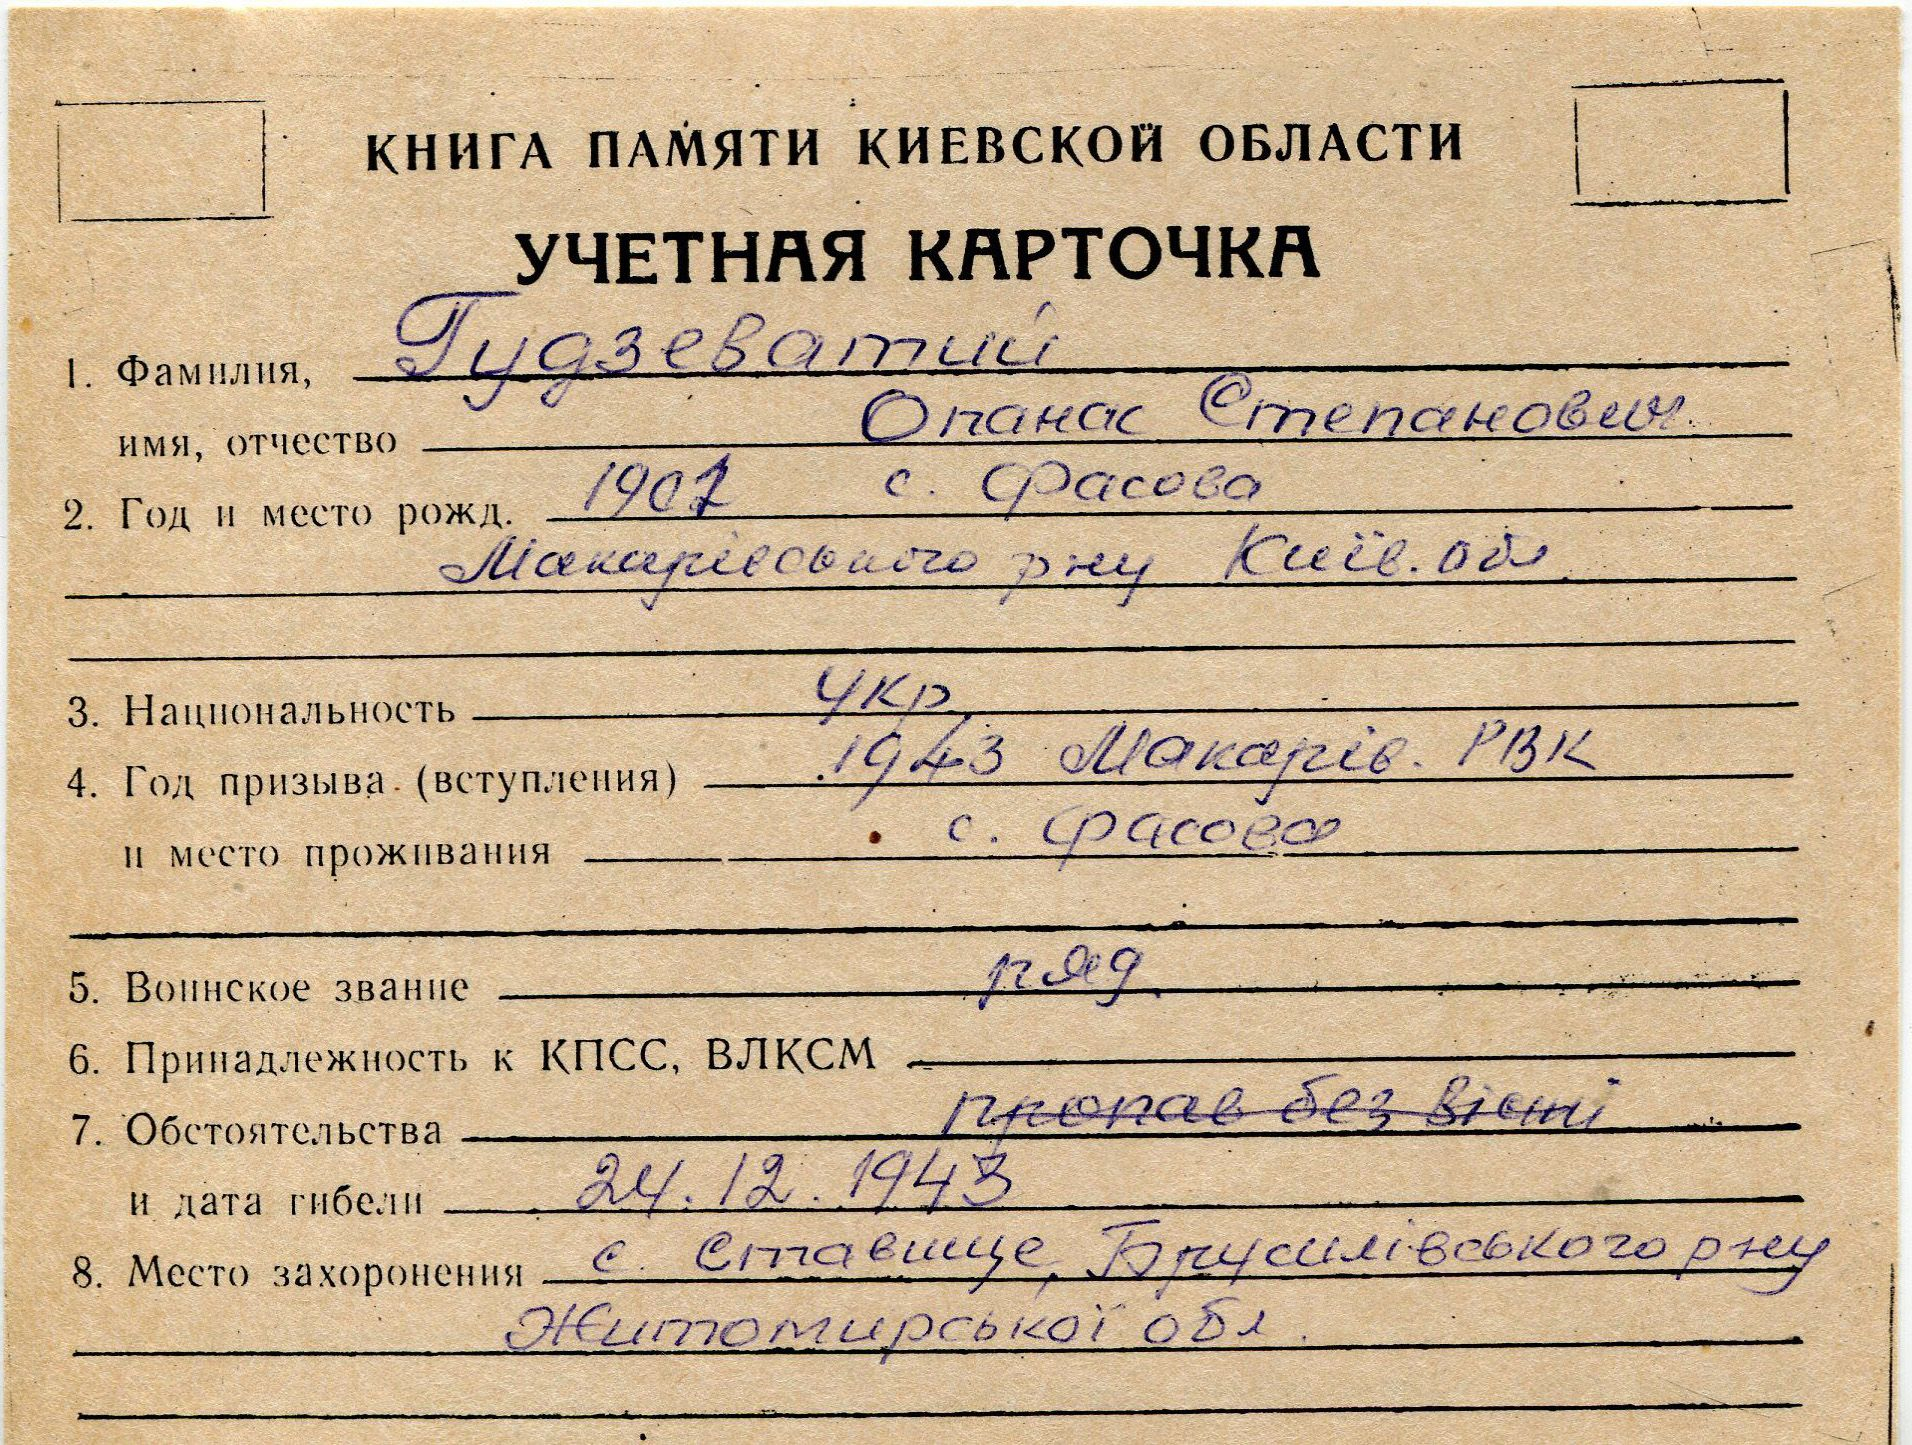 КНИГА ПАМЯТИ КИЕВСКОЙ ОБЛАСТИ
УЧЕТНАЯ КАРТОЧКА
1. Фамилия, Гудзеватий
имя, отчество Опанас Степанович
2. Год и место рожд. 1907 с. Фасова
Макарівського р-ну Київ. обл.
3. Национальность Укр.
4. Год призыва (вступления) 1943 Макарів. РВК
и место проживания с. Фасова
5. Воинское звание ряд.
6. Принадлежность к КПСС, ВЛКСМ
7. Обстоятельства пропав без вісті
и дата гибели 24.12.1943
8. Место захоронения с. Ставище, Брусилівського р-ну
Житомирської обл.